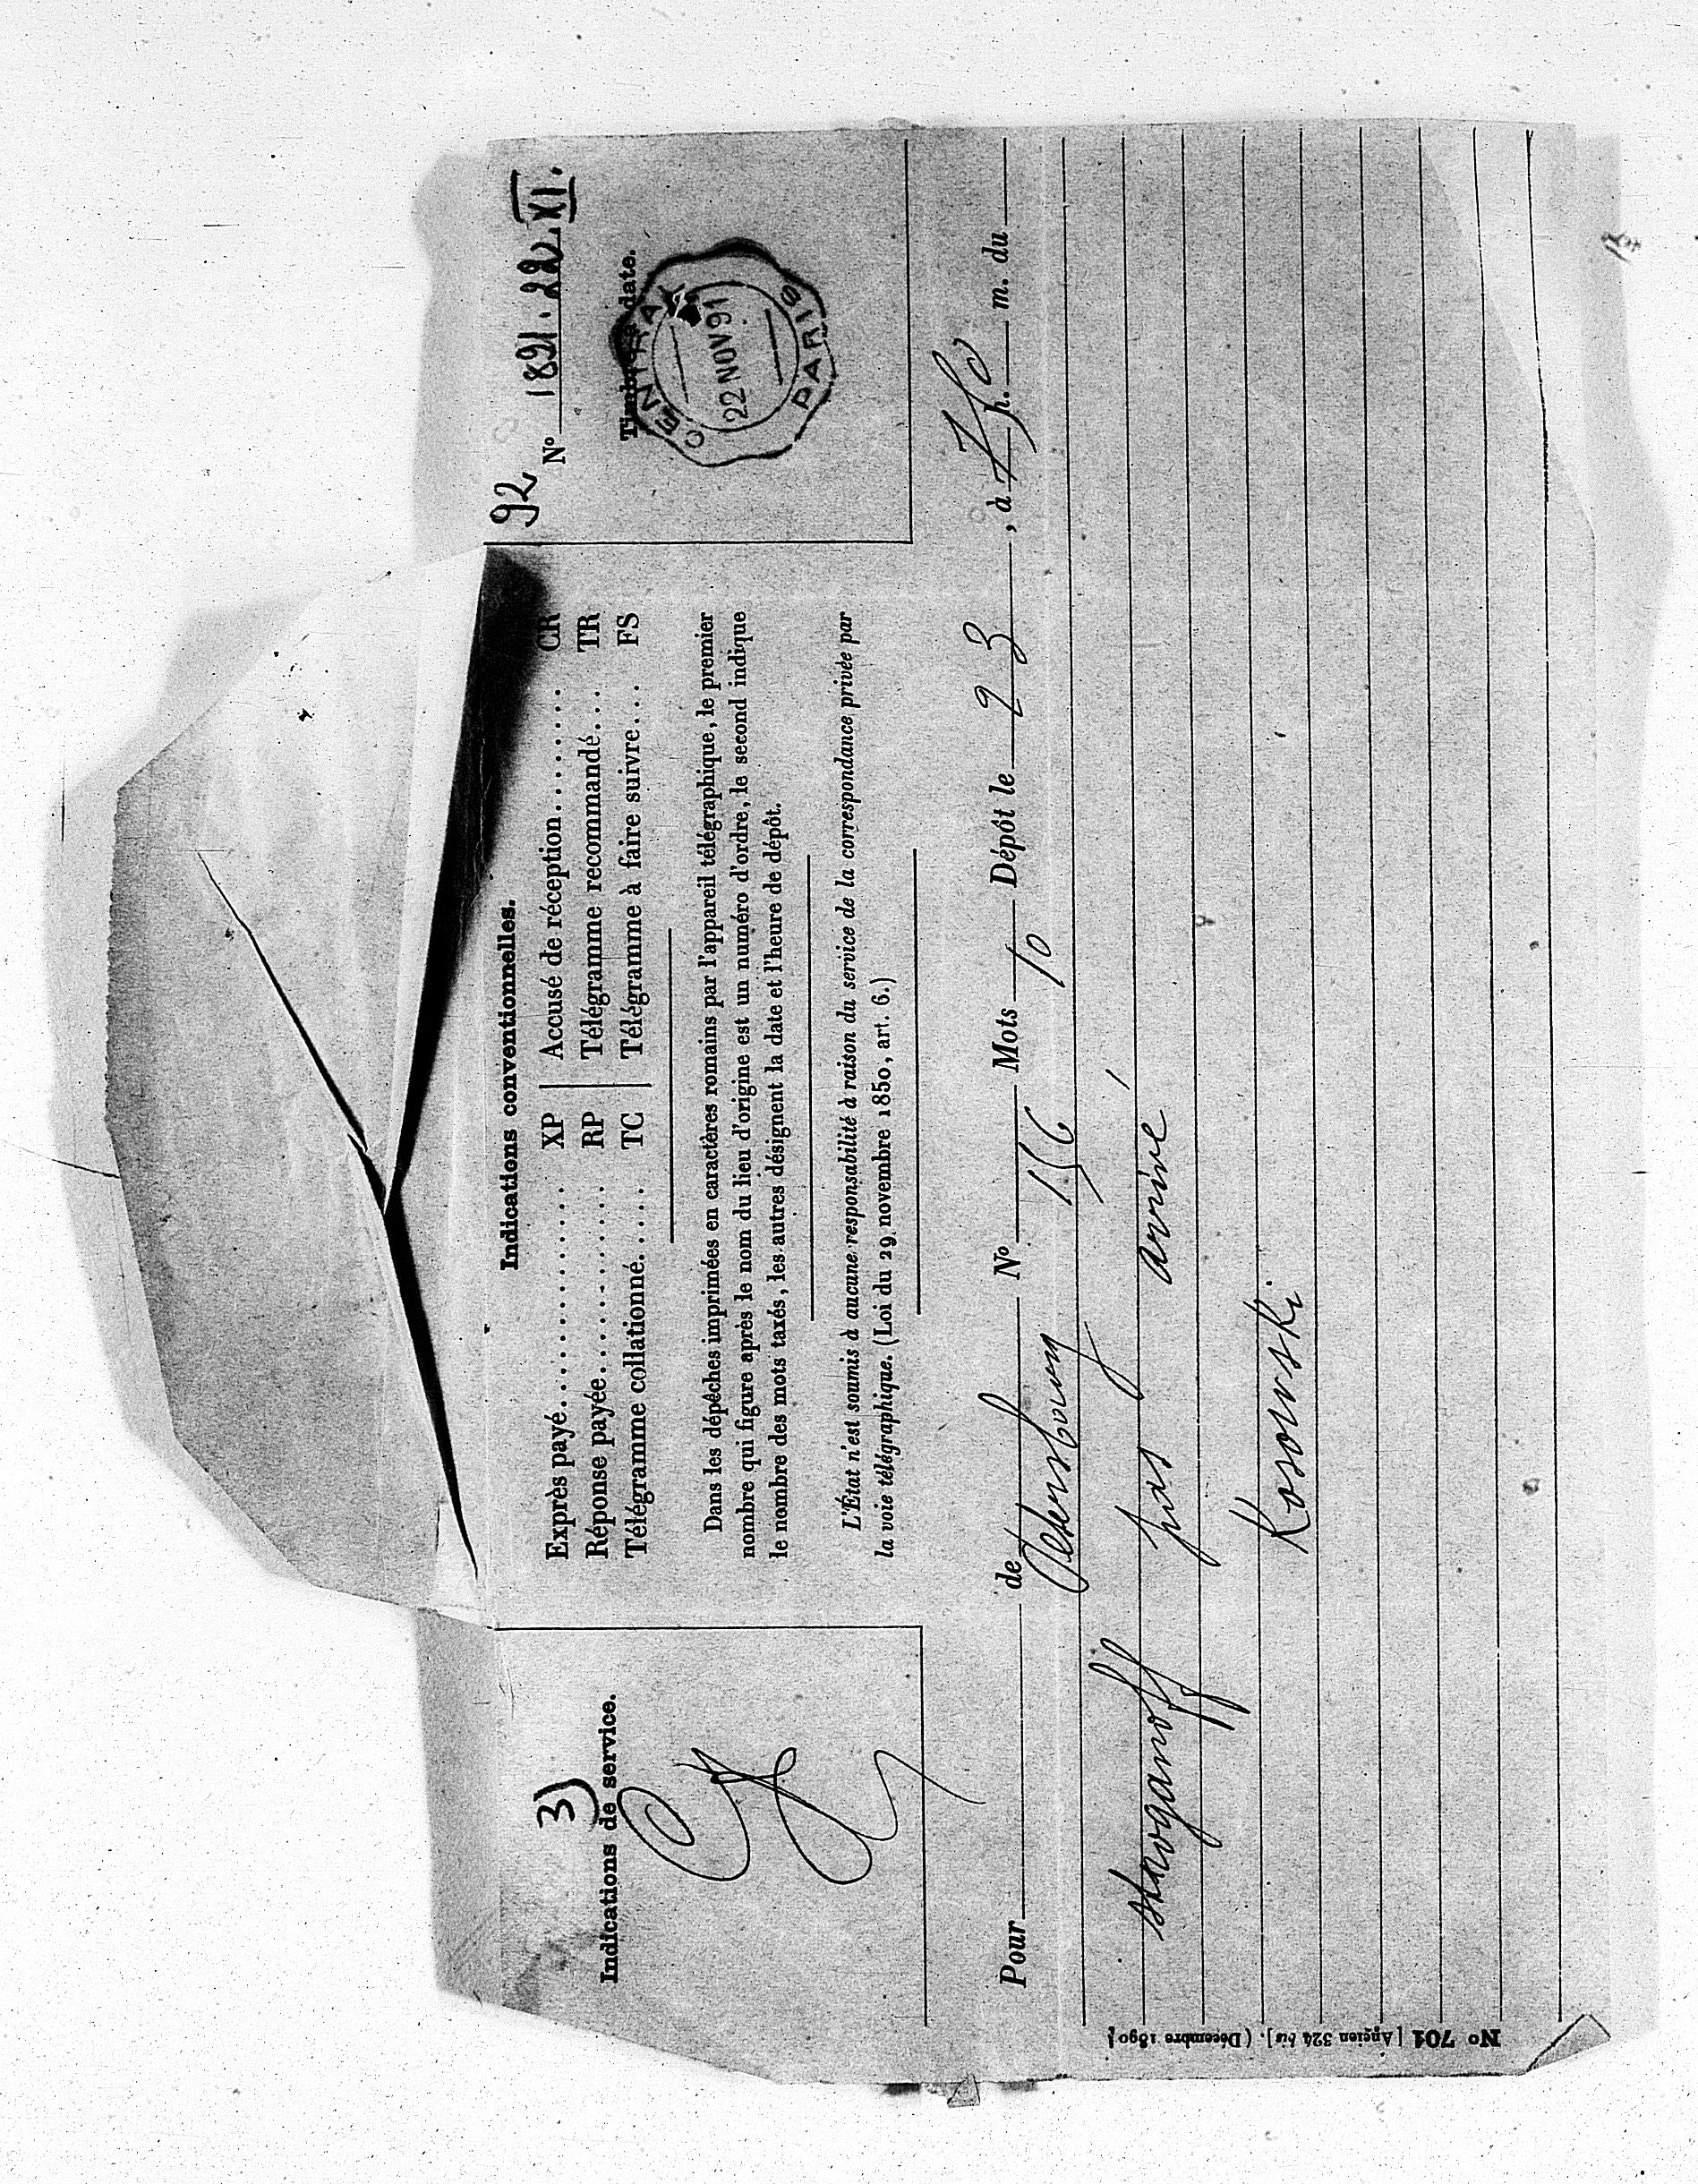 3)
Indications de service.
Indications conventionnelles.
Exprès payé............ XP
Réponse payée............ RP
Télégramme collationné..... TC
Accusé de réception........ CR
Télégramme recommandé... TR
Télégramme à faire suivre... FS
Dans les dépêches imprimées en caractères romains par l'appareil télégraphique, le premier
nombre qui figure après le nom du lieu d'origine est un numéro d'ordre, le second indique
le nombre des mots taxés, les autres désignent la date et l'heure de dépôt.
L'État n'est soumis à aucune responsabilité à raison du service de la correspondance privée par
la voie télégraphique. (Loi du 29 novembre 1850, art. 6.)
92
N° 1891. 22. XI.
Timbre à date.
CENTRAL
22 NOV 91
PARIS
Pour de Petersbourg N° 156 Mots 10 Dépôt le 23, à h. m. du
Stroganoff pas arrivé
Kosowski
N° 701 [Ancien 324 bis]. (Décembre 1890)